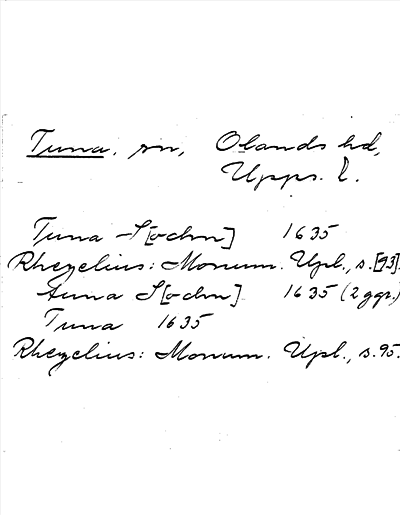 Tuna, sn, Olands hd,
Upps. l.
Tuna S[ochn] 1635
Rhezelius: Monum. Upl., s. [93].
Tuna S[ochn] 1635 (2 ggr.)
Tuna 1635
Rhezelius: Monum. Upl., s. 95.